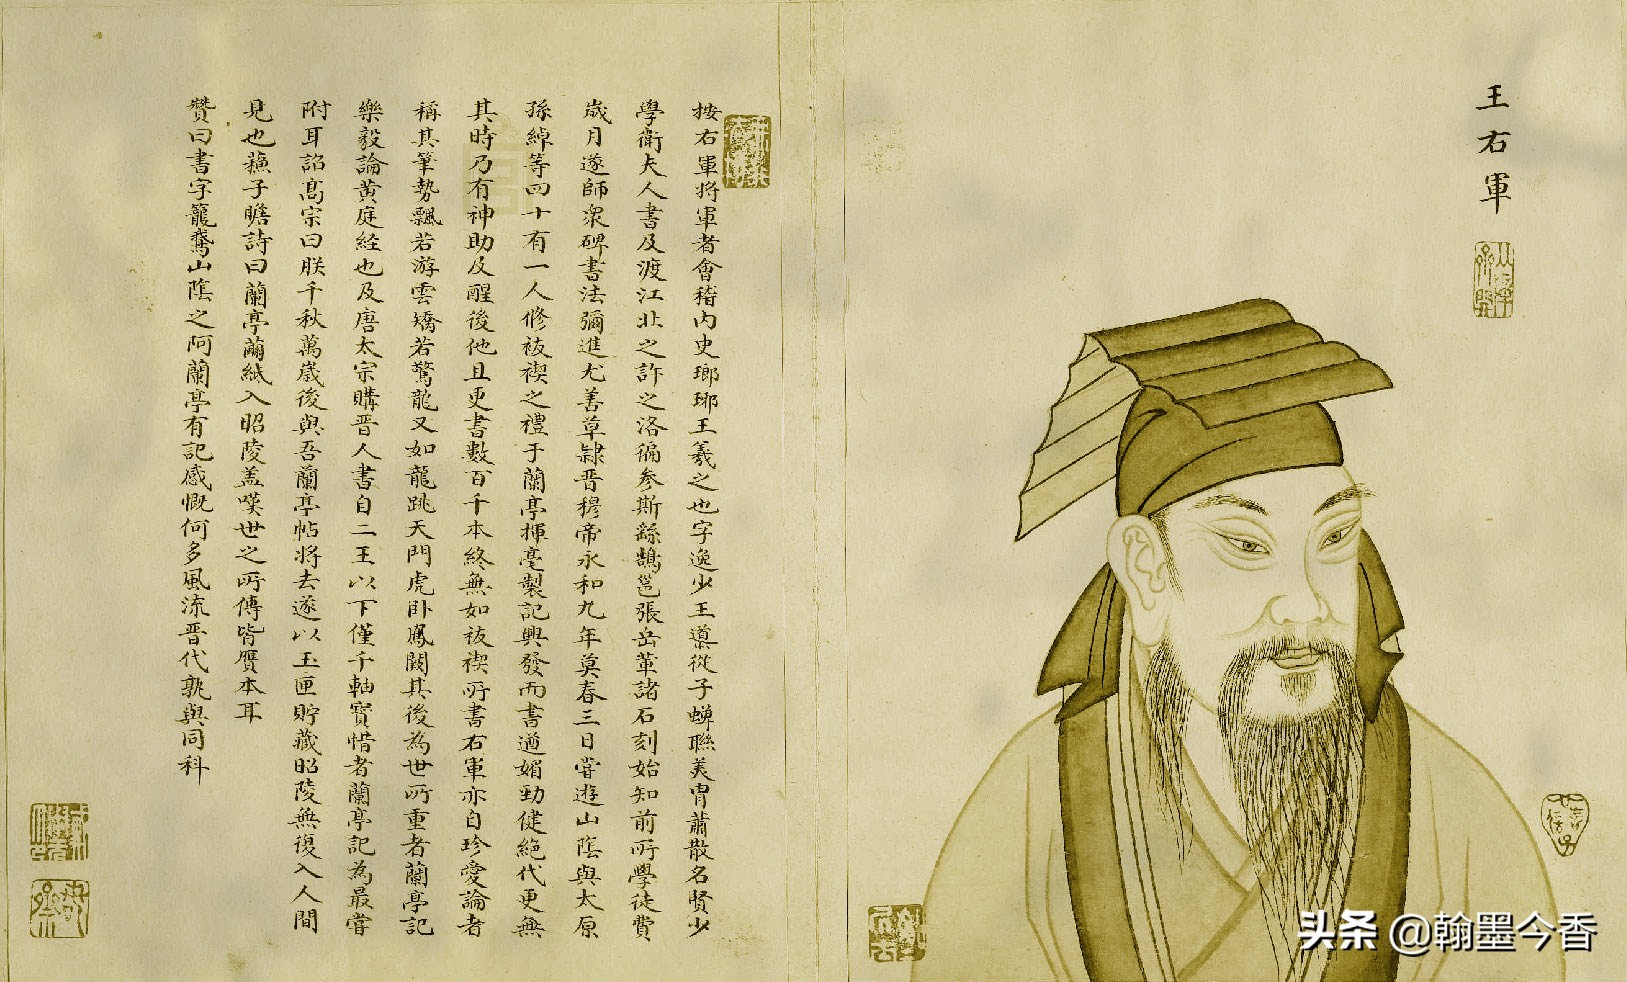 王右軍
按右軍將軍者會稽内史瑯琊王羲之也字逸少王導從子蟬聯美胄蕭散名賢少
學衛夫人書及渡江北之許之洛徧参斯繇鵠邕張岳華諸石刻始知前所學徒費
歲月遂師衆碑書法彌進尤善草隸晋穆帝永和九年莫春三日嘗遊山陰與太原
孫綽等四十有一人修祓禊之禮于蘭亭揮毫製記興發而書遒媚勁健絕代更無
其時乃有神助及醒後他且更書數百千本終無如祓禊所書右軍亦自珍愛論者
稱其筆勢飄若游雲矯若驚龍又如龍跳天門虎卧鳳闕其後為世所重者蘭亭記
樂毅論黄庭経也及唐太宗購晋人書自二王以下僅千軸寳惜者蘭亭記為最嘗
附耳詔髙宗曰朕千秋萬歲後與吾蘭亭帖将去遂以玉匣貯藏昭陵無復入人間
見也蘓子瞻詩曰蘭亭繭紙入昭陵盖嘆世之所傳皆贗本耳
贊曰書字籠鵞山陰之阿蘭亭有記感慨何多風流晋代孰與同科
头条 @翰墨今香